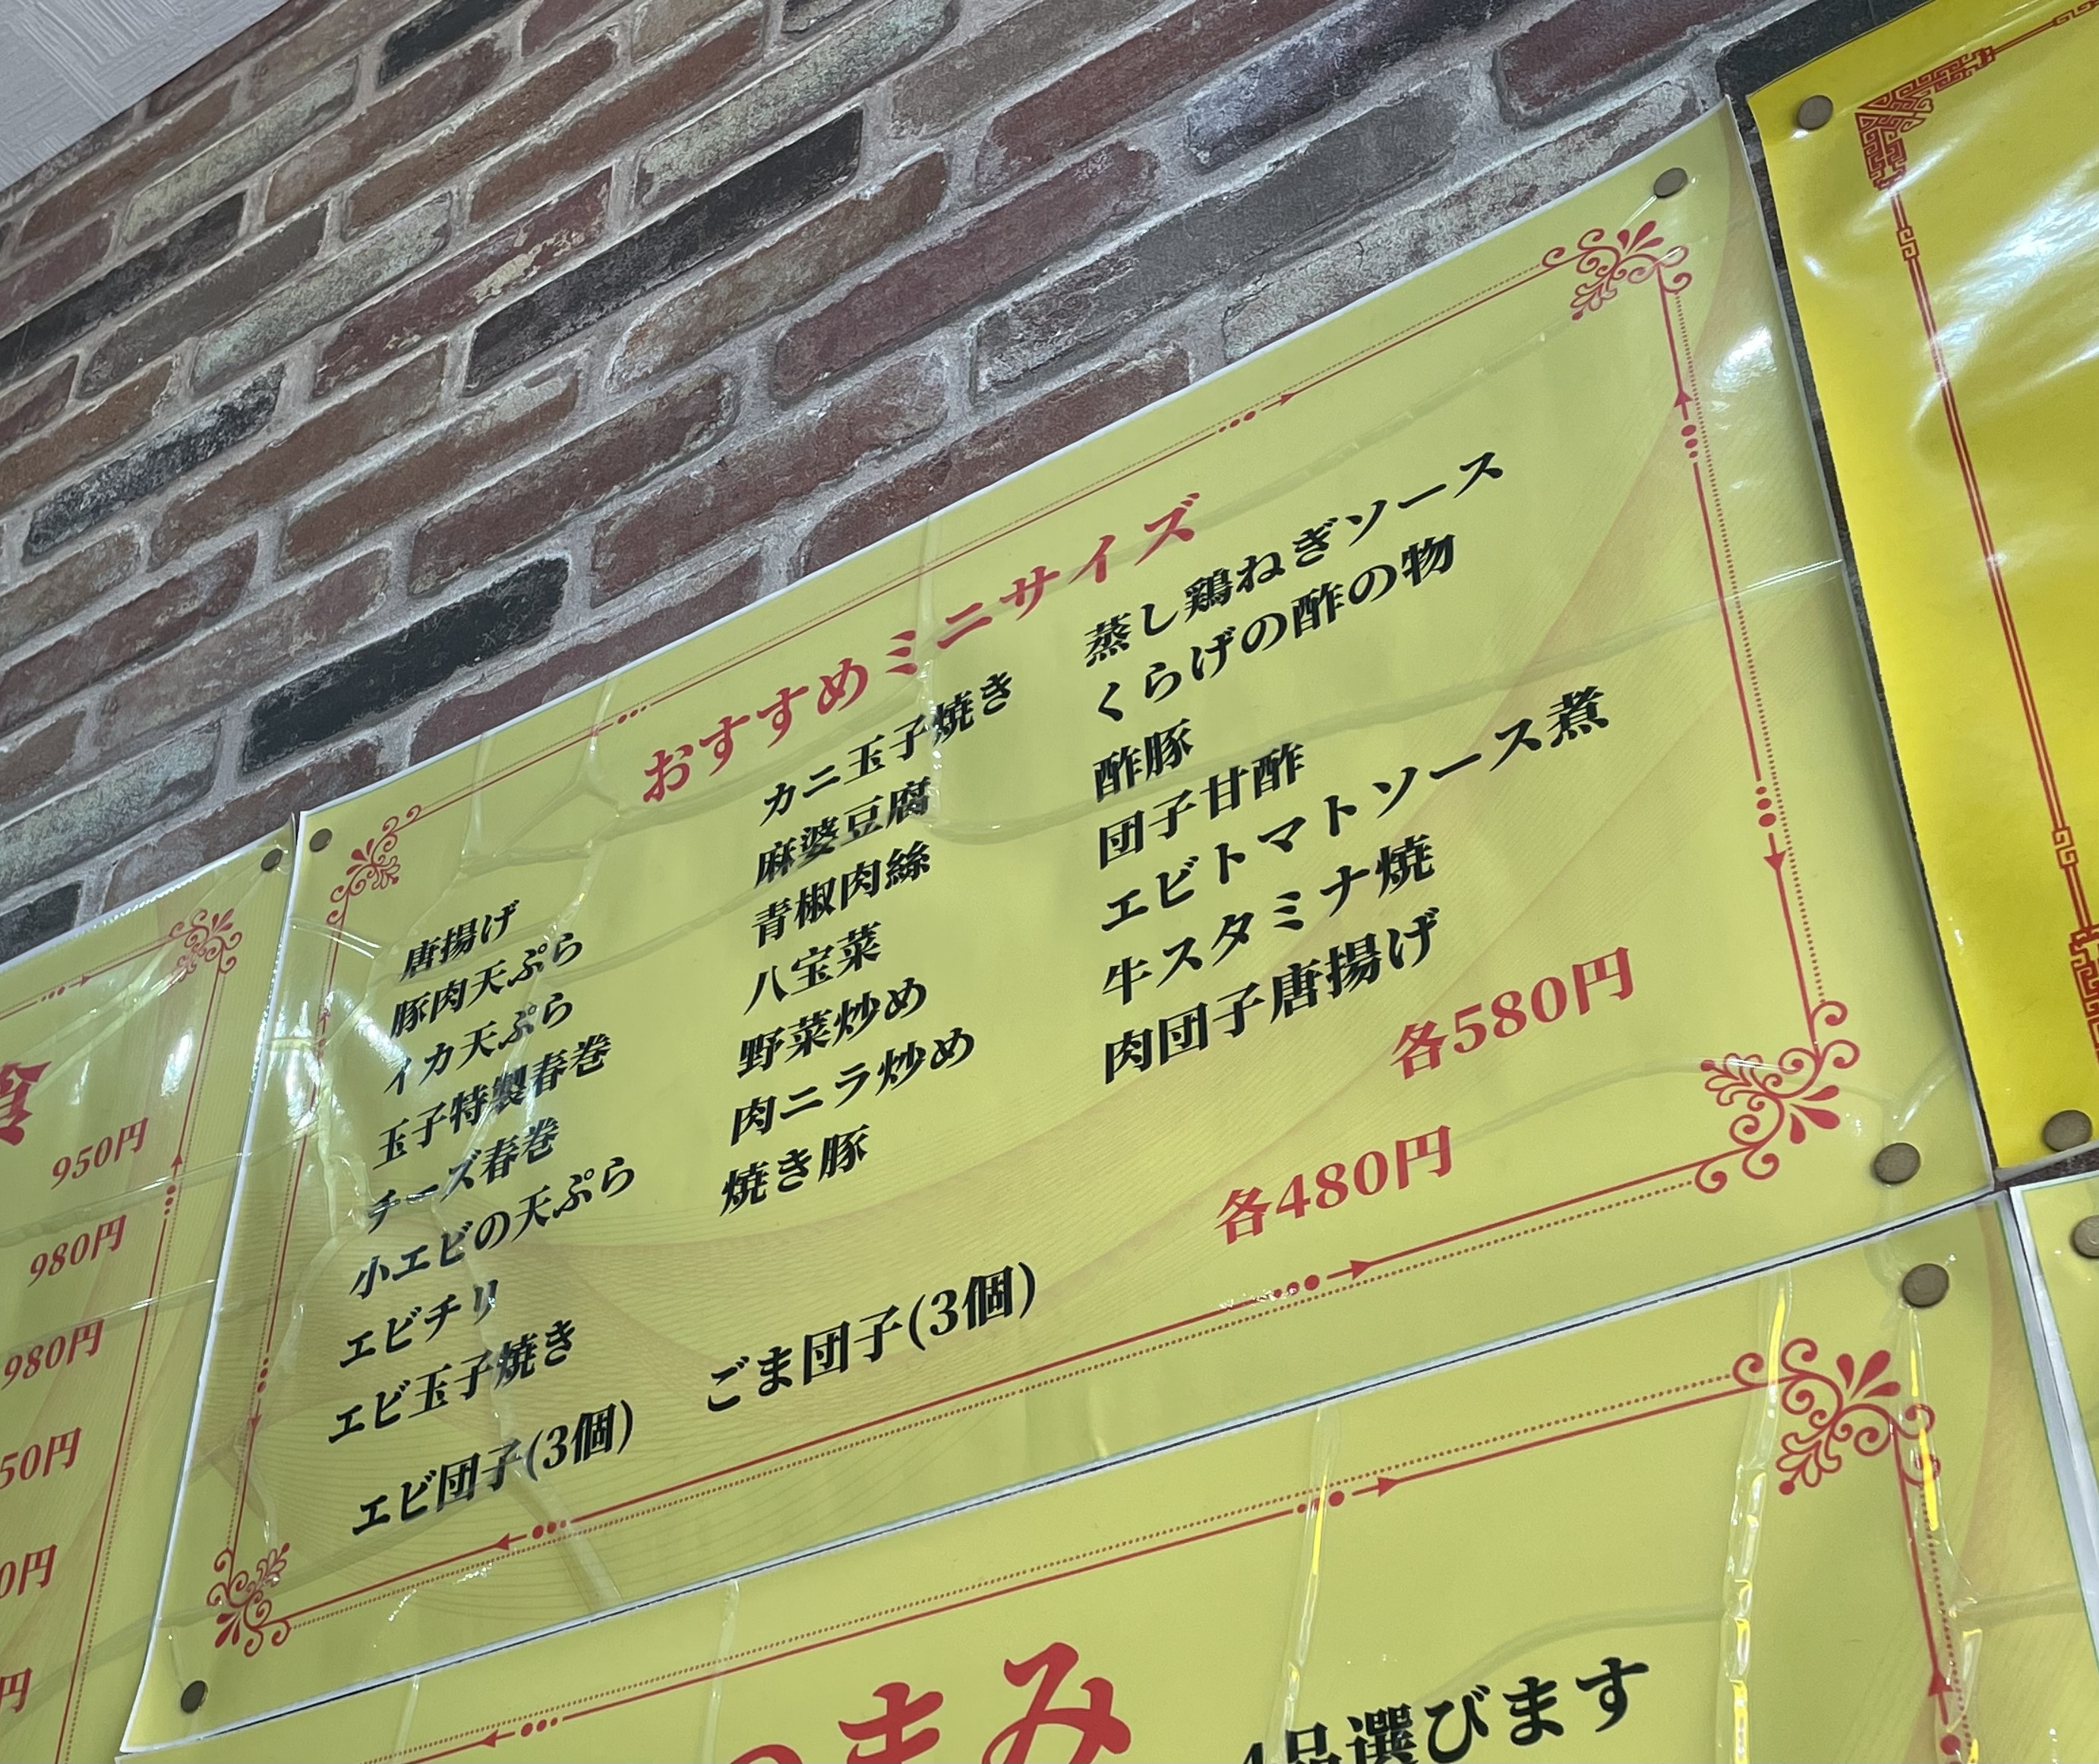 おすすめミニサイズ
唐揚げ
豚肉天ぷら
イカ天ぷら
玉子特製春巻
チーズ春巻
小エビの天ぷら
エビチリ
エビ玉子焼き
カニ玉子焼き
麻婆豆腐
青椒肉絲
八宝菜
野菜炒め
肉ニラ炒め
焼き豚
蒸し鶏ねぎソース
くらげの酢の物
酢豚
団子甘酢
エビトマトソース煮
牛スタミナ焼
肉団子唐揚げ
各580円
エビ団子(3個)
ごま団子(3個)
各480円
950円
980円
980円
50円
0円
円
まみ
4品選びます